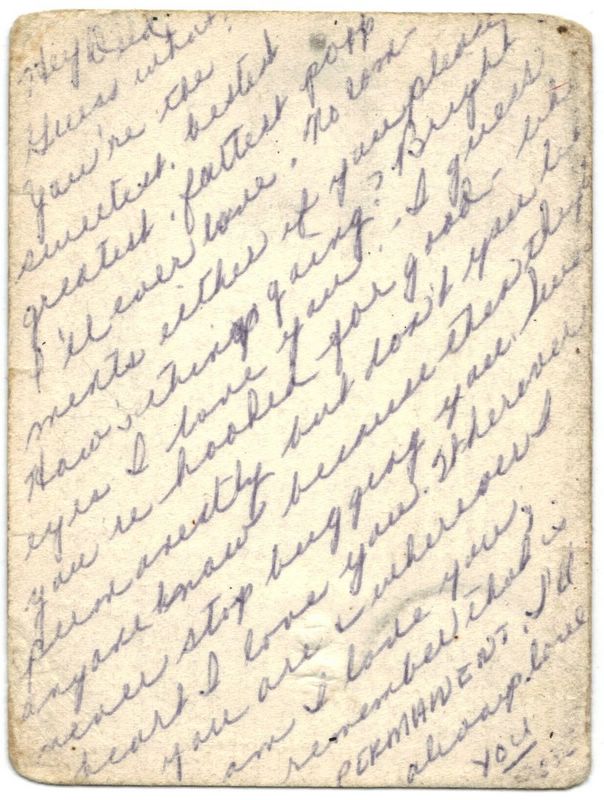 Hey
Guess what?
You're the
sweetest, bested
greatest, fattest
I'll ever love. No com-
ments either if you please
How's things going? Bright
eyes I love you. I guess
you're hooked for good -
but don't you
anyone know because then
never stop bugging you.
heart I love you. Wherever
you are & wherever I
am I love you,
remember that is
PERMANENT. I'll
always love
you